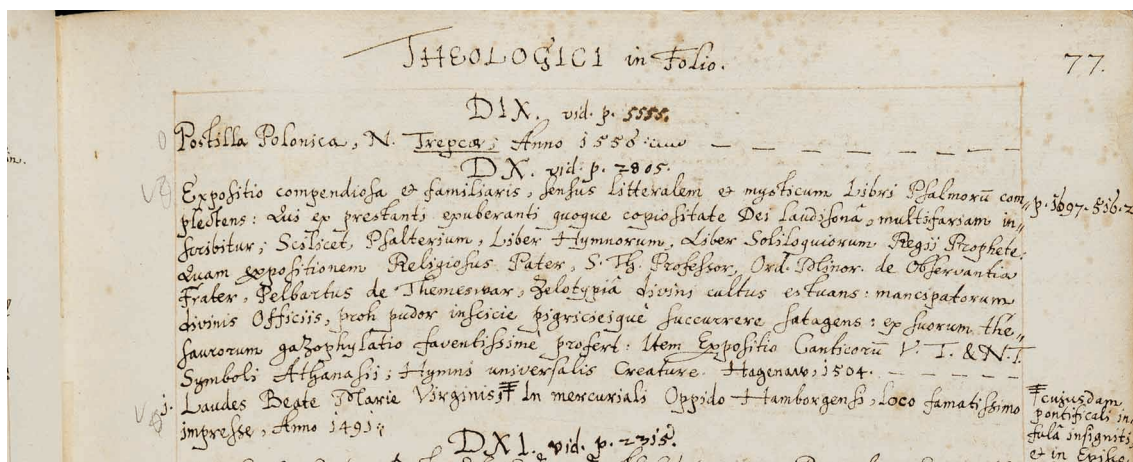 THEOLOGICI in Folio.
77.
DIX. vid. p. 5555.
Postilla Polonica, N. Trepcæ; Anno 1556
DX. vid. p. 2805.
Expositio compendiosa et familiaris, sensus litteralem et mysticum Libri Psalmorū com-
plectens: Qui ex prestanti exuberanti quoque copiositate Dei laudisonâ, multifariam in-
scribitur; Scilicet, Psalterium, Liber Hymnorum, Liber Soliloquiorum Regii Prophete;
Quam expositionem Religiosus Pater, S. Th. Professor, Ord. Minor. de Observantia
Frater, Pelbartus de Themeswar, Zelotypiâ divini cultus estuans: mancipatorum
divinis Officiis, proh pudor inscicie pigricieique succurrere satagens: ex suorum the-
saurorum gazophylatio faventissime profert: Item Expositio Canticorū V. T. & N. T.
Symboli Athanasii; Hymni universalis Creature. Hagenaw, 1504.
1. Laudes Beate Marie Virginis, In mercuriali Oppido Hamborgensi, loco famatissimo
impresse, Anno 1491;
cujusdam
pontificali in-
fulâ insigniti,
et in Episc-
DXI. vid. p. 2315.